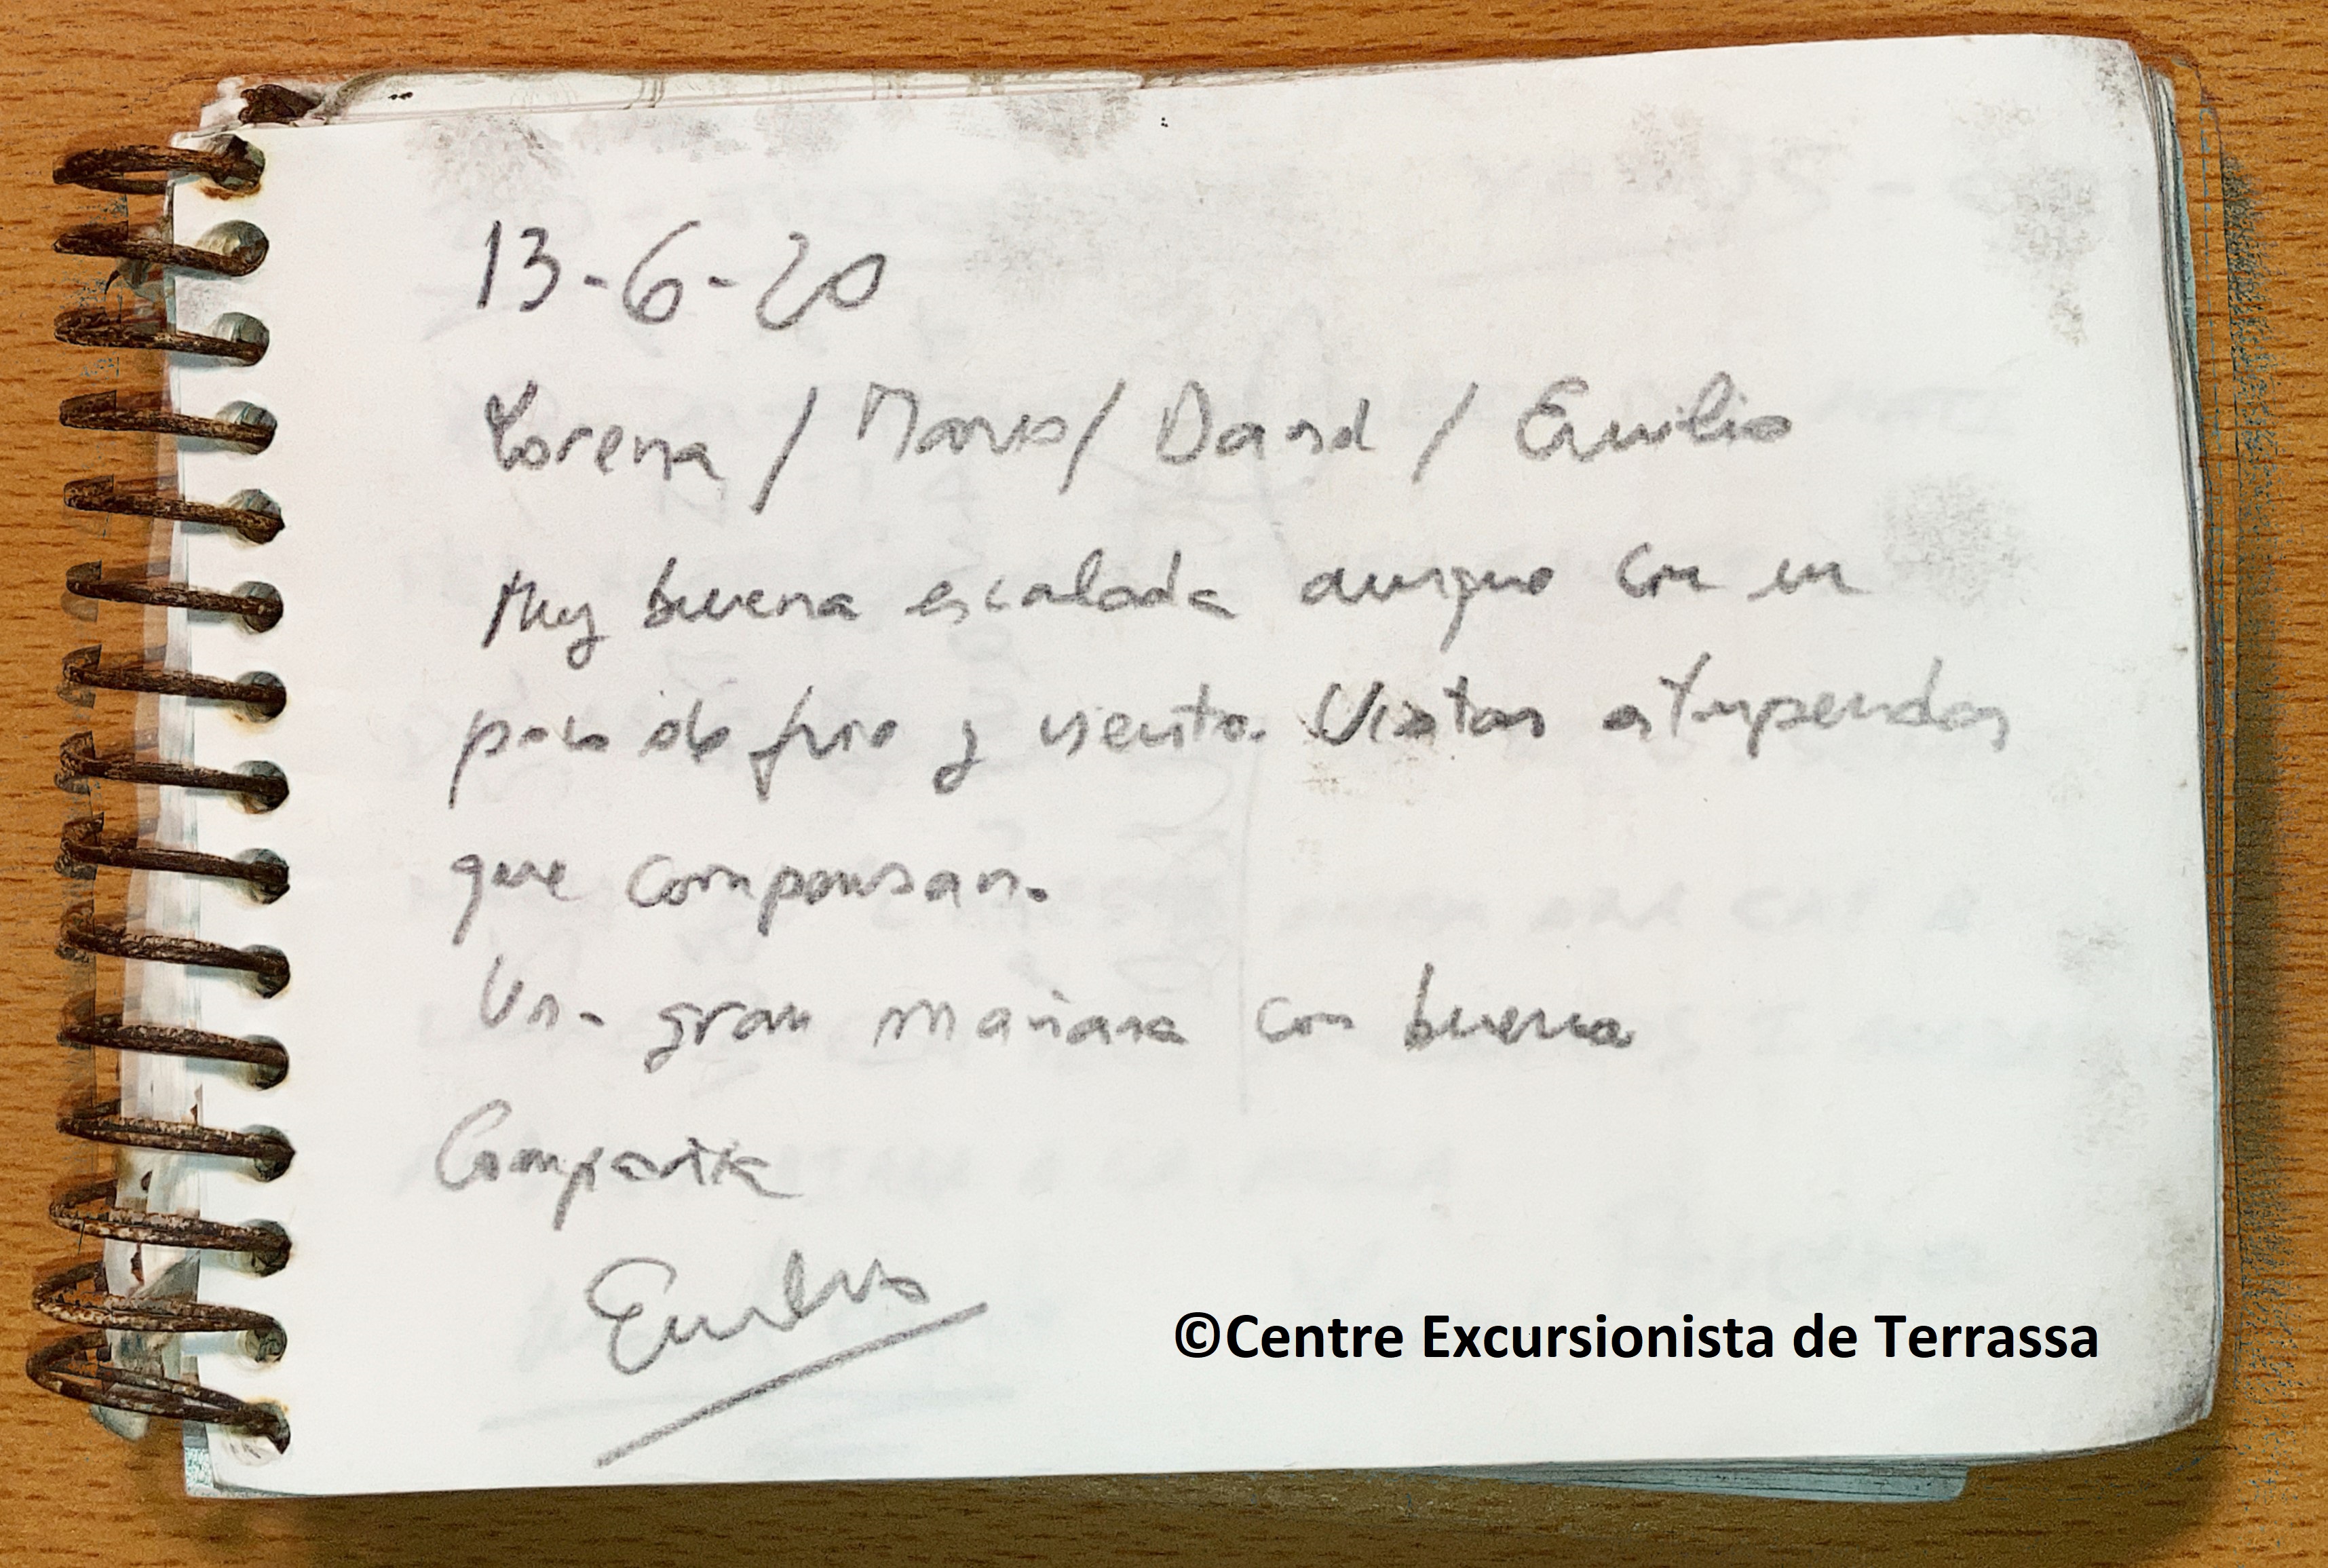 13-6-20
Lorena / Mario / David / Emilio
Muy buena escalada aunque con un
poco de frio y viento. Vistas estupendas
que compensan.
Un- gran mañana con buena
Compañia
Emilio
©Centre Excursionista de Terrassa